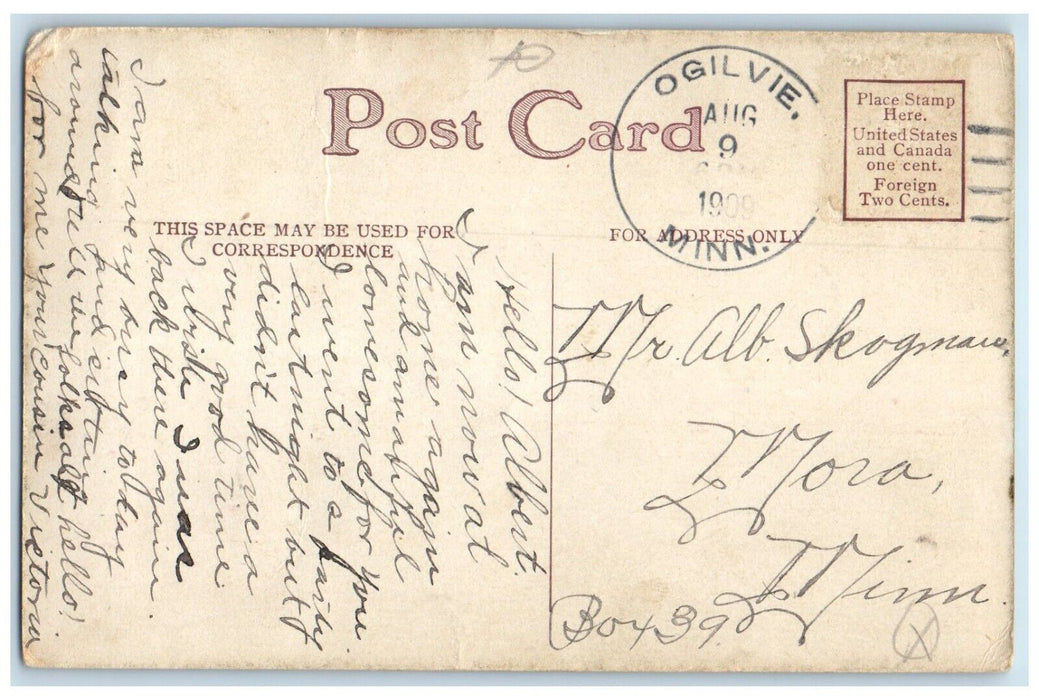 Post Card
OGILVIE.
AUG
9
1909
MINN.
Place Stamp
Here.
United States
and Canada
one cent.
Foreign
Two Cents.
THIS SPACE MAY BE USED FOR
CORRESPONDENCE
FOR ADDRESS ONLY
Hello! Albert.
I am now at
home again
and am awful
lonesome for you
I went to a party
last night but I
didn't have a
very good time
I wish I was
back there again.
I am very busy to day
talking and
around. Tell the folks all hello!
for me your cousin Victoria
Mr. Alb. Skogman,
Mora,
Minn.
Box 39
X